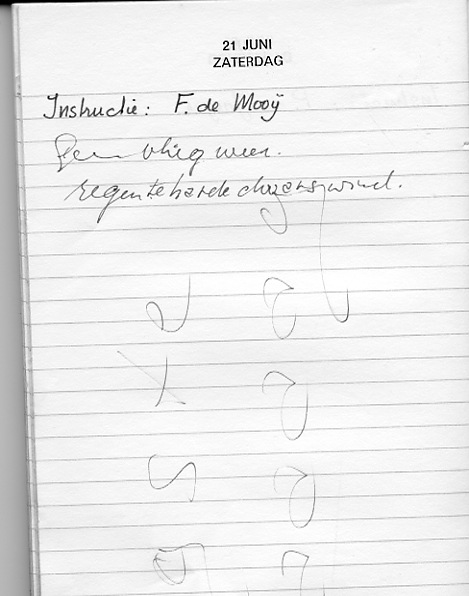 21 JUNI
ZATERDAG
Instructie: F. de Mooij
Geen vliegweer.
regen te harde dwarswind.